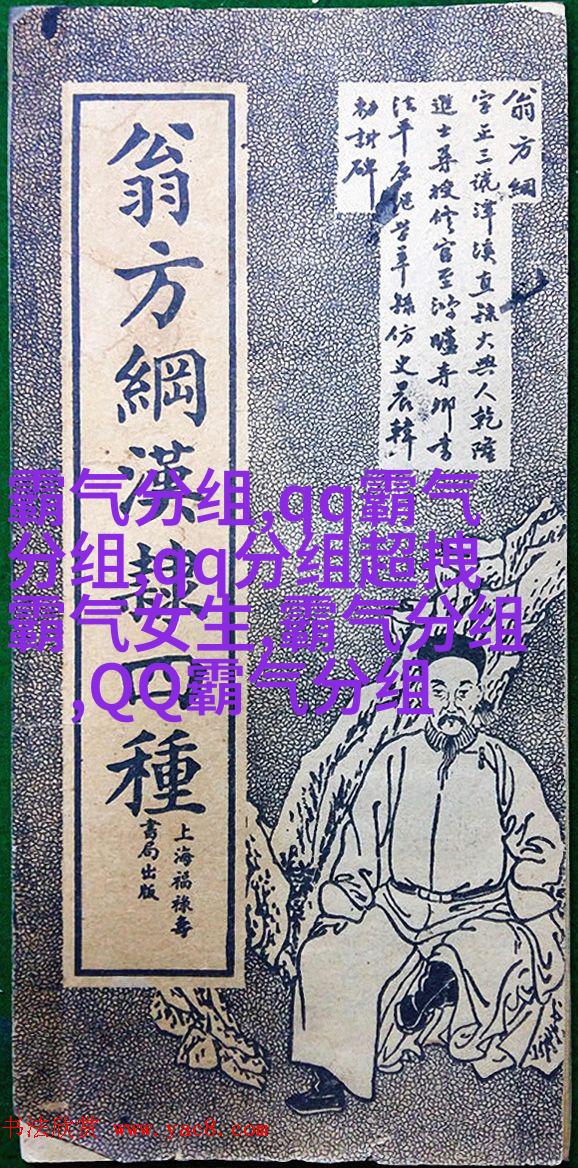 翁方綱
字正三號潭溪直隸大興人乾隆
進士尋授修官至鴻臚寺卿書
法平原 隸仿史晨韓
勑碑
翁方綱漢隸四種
上海福祿壽
書局出版
霸气分组,qq霸气
分组,qq分组超拽
霸气女生,霸气分组
,QQ霸气分组
书法欣赏 www.yac8.com